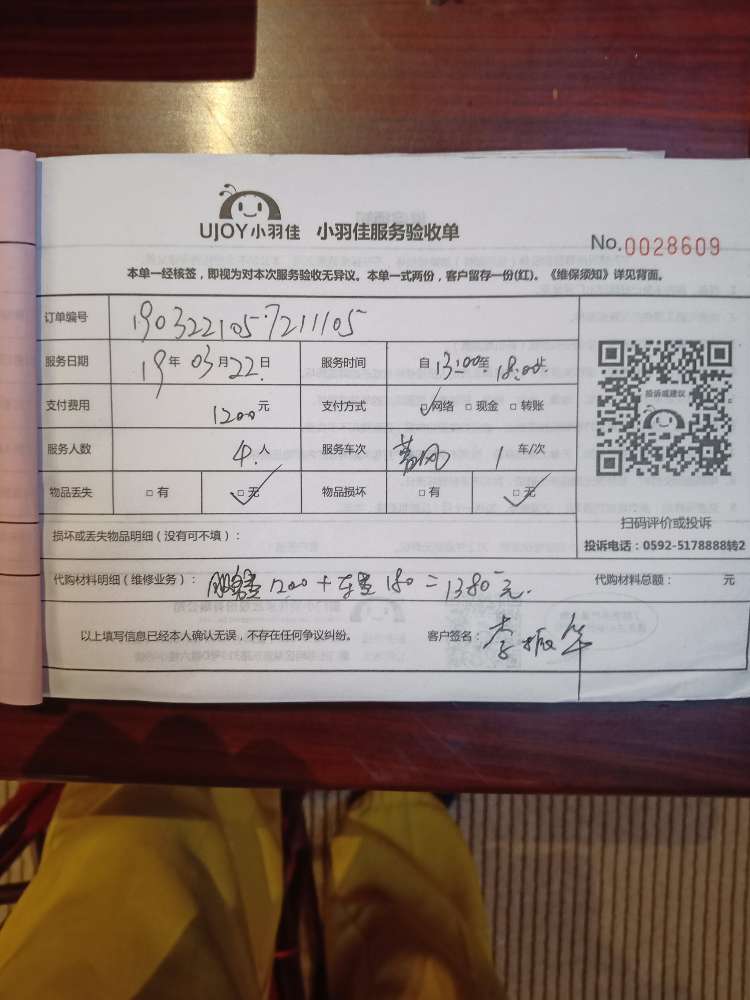 UJOY小羽佳 小羽佳服务验收单
No.0028609
本单一经核签，即视为对本次服务验收无异议。本单一式两份，客户留存一份(红)。《维保须知》详见背面。
订单编号 1903221057211105
服务日期 19年03月22日 服务时间 自13:00至18:00止
支付费用 1200元 支付方式 ☑网络 □现金 □转账
服务人数 4人 服务车次 1车/次
物品丢失 □有 ☑无 物品损坏 □有 ☑无
投诉或建议
扫码评价或投诉
投诉电话：0592-5178888转2
损坏或丢失物品明细（没有可不填）：
代购材料明细（维修业务）： 1200+车费180=1380元. 代购材料总额： 元
以上填写信息已经本人确认无误，不存在任何争议纠纷。 客户签名：李振华